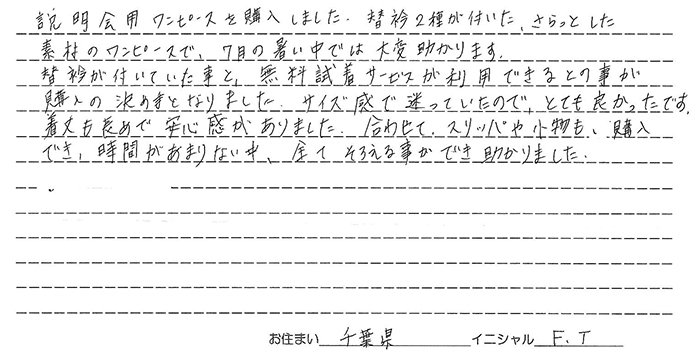 説明会用ワンピースを購入しました。替衿2種が付いた、さらっとした
素材のワンピースで、7月の暑い中では大変助かります。
替衿が付いていた事と、無料試着サービスが利用できるとの事が
購入の決めてとなりました。サイズ感で迷っていたので、とても良かったです。
着丈も長めで安心感がありました。合わせて、スリッパや小物も、購入
でき、時間があまりない中、全てそろえる事ができ助かりました。
お住まい 千葉県 イニシャル F.T